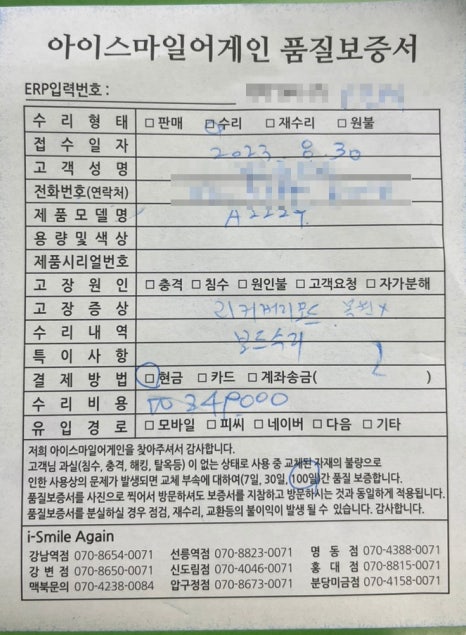 아이스마일어게인 품질보증서
ERP입력번호 :
수리형태 □ 판매 □ 수리 □ 재수리 □ 원불
접수일자 2023. 8. 30
고객성명
전화번호(연락처)
제품모델명 A2227
용량및색상
제품시리얼번호
고장원인 □ 충격 □ 침수 □ 원인불 □ 고객요청 □ 자가분해
고장증상 리커버리모드 복원x
수리내역 보드수리
특이사항
결제방법 □ 현금 □ 카드 □ 계좌송금( )
수리비용
유입경로 □ 모바일 □ 피씨 □ 네이버 □ 다음 □ 기타
저희 아이스마일어게인을 찾아주셔서 감사합니다.
고객님 과실(침수, 충격, 해킹, 탈옥등) 이 없는 상태로 사용 중 교체된 자재의 불량으로
인한 사용상의 문제가 발생되면 교체 부속에 대하여(7일, 30일, 100일)간 품질 보증합니다.
품질보증서를 사진으로 찍어서 방문하셔도 보증서를 지참하고 방문하시는 것과 동일하게 적용됩니다.
품질보증서를 분실하실 경우 점검, 재수리, 교환등의 불이익이 발생 될 수 있습니다. 감사합니다.
i-Smile Again
강남역점 070-8654-0071 선릉역점 070-8823-0071 명동점 070-4388-0071
강변점 070-8650-0071 신도림점 070-4046-0071 홍대점 070-8815-0071
맥북문의 070-4238-0084 압구정점 070-8673-0071 분당미금점 070-4158-0071